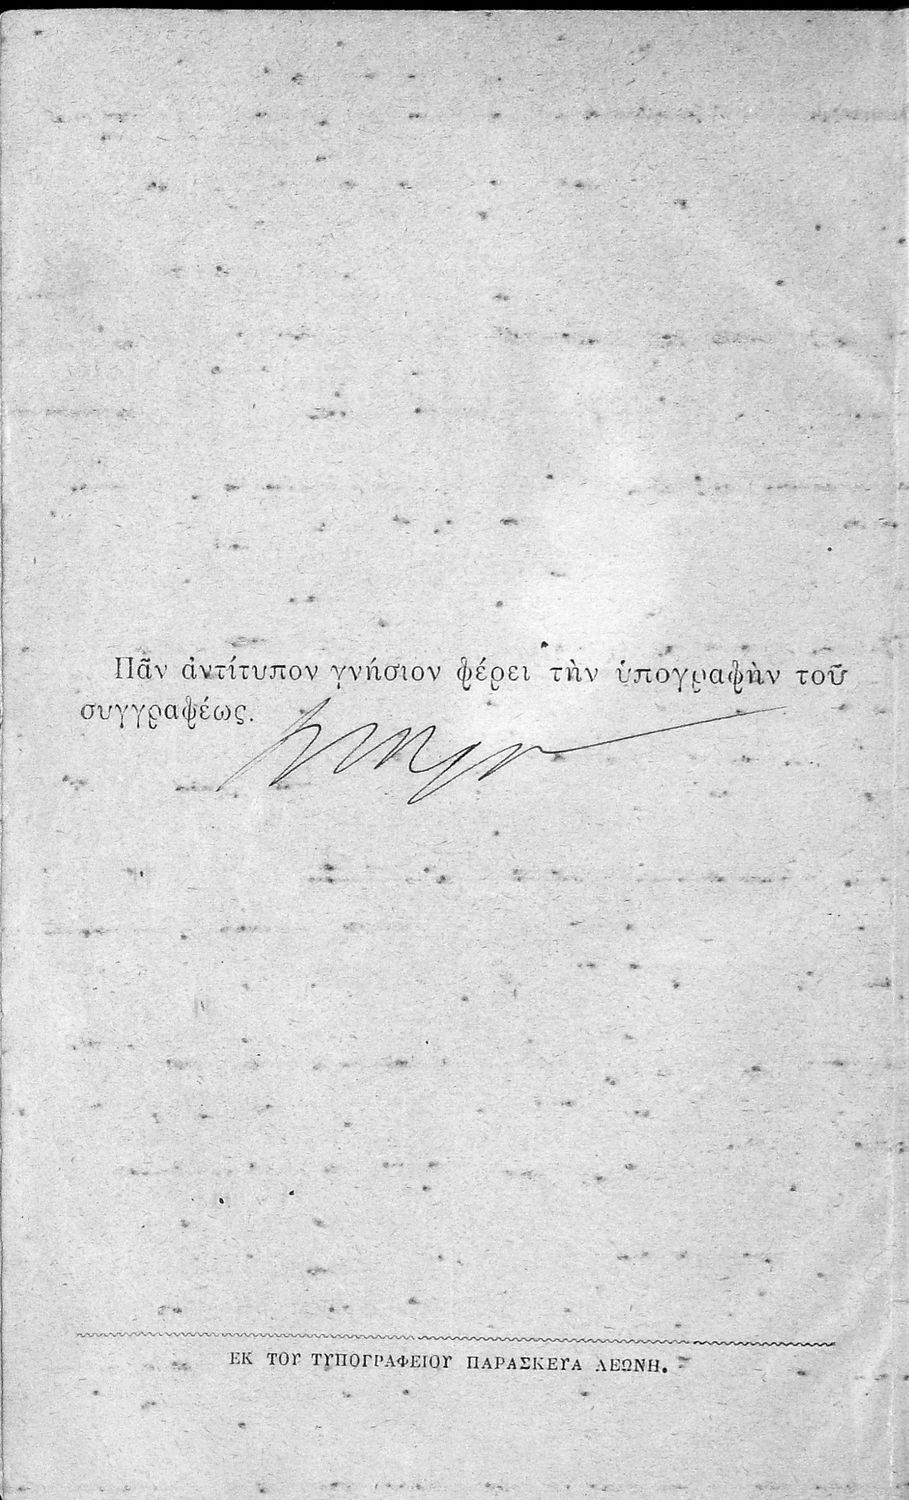 Πᾶν ἀντίτυπον γνήσιον φέρει τὴν ὑπογραφὴν τοῦ
συγγραφέως.
ΕΚ ΤΟΥ ΤΥΠΟΓΡΑΦΕΙΟΥ ΠΑΡΑΣΚΕΥΑ ΛΕΩΝΗ.